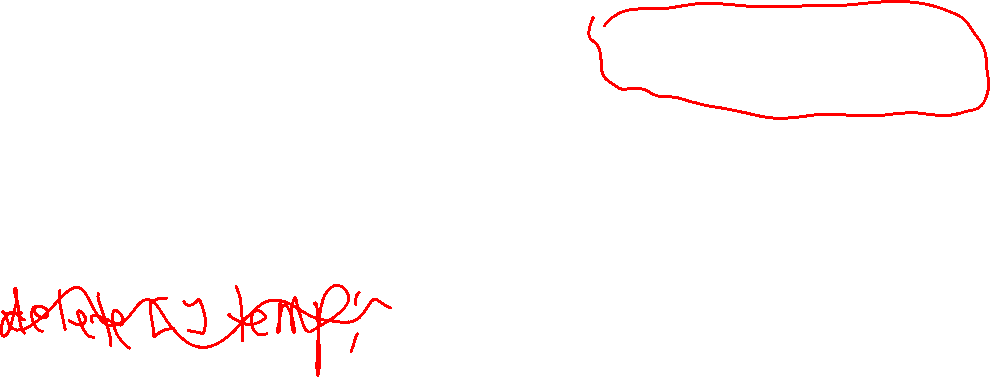 delete [] temp;